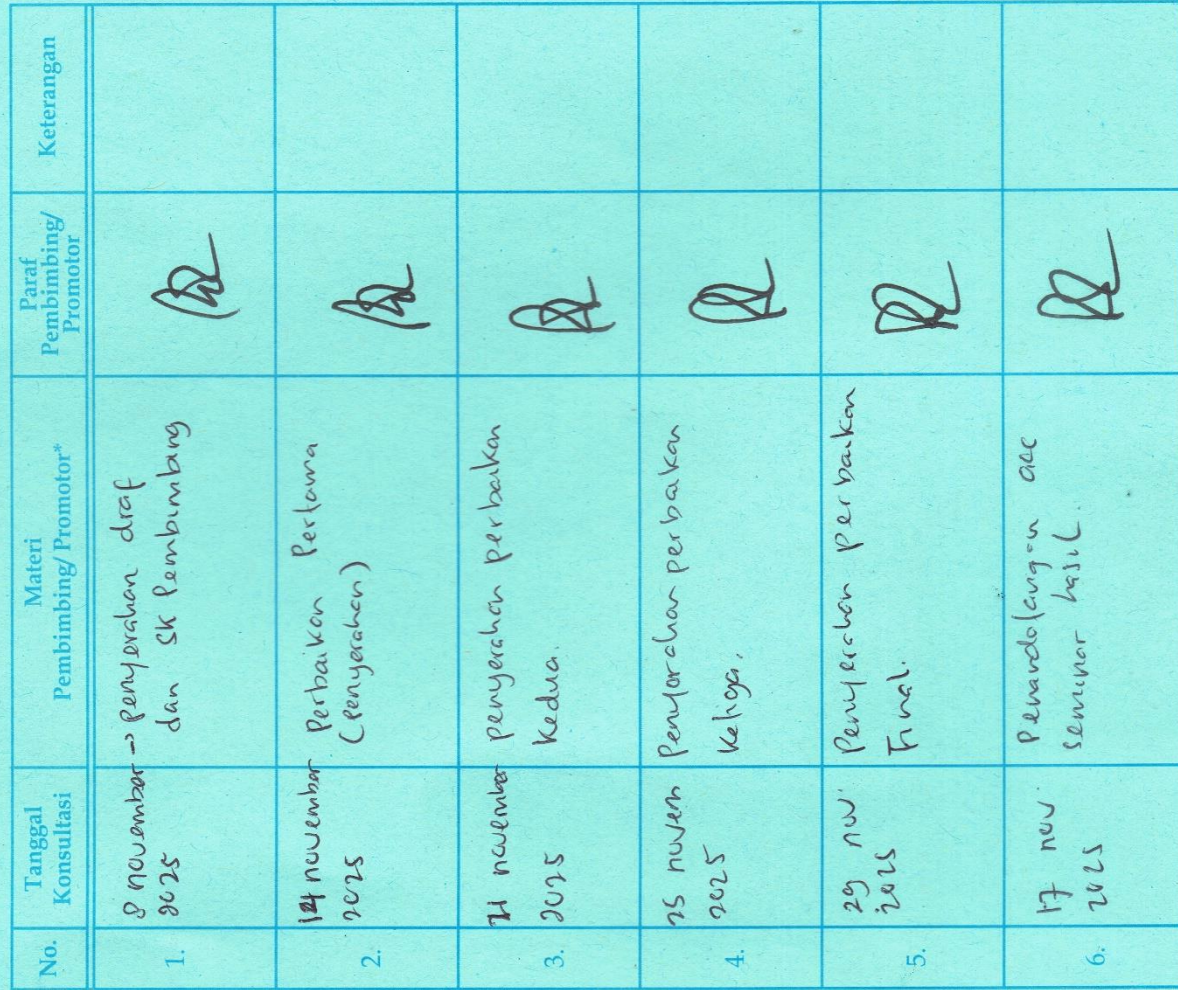 No.
Tanggal
Konsultasi
Materi
Pembimbing/ Promotor*
Paraf
Pembimbing/
Promotor
Keterangan
1.
8 november
2025
→ penyerahan draf
dan SK Pembimbing
2.
14 november
2025
Perbaikan Pertama
(Penyerahan)
3.
21 november
2025
penyerahan perbaikan
Kedua.
4.
25 noven
2025
Penyerahan perbaikan
Ketiga.
5.
29 nov
2025
Penyerahan perbaikan
Final.
6.
17 nov
2025
Penandatangan acc
seminar hasil.